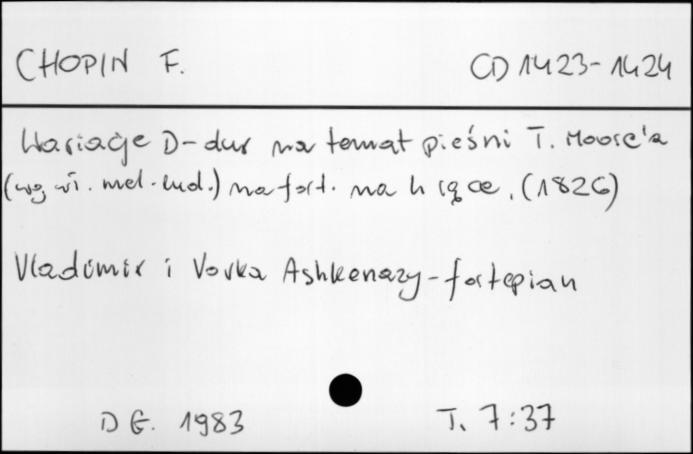 CHOPIN F. CD 1423-1424
Wariacje D-dur na temat pieśni T. Moore'a
(wg wł. mel. lud.) na fort. na 4 ręce. (1826)
Vladimir i Vovka Ashkenazy - fortepian
DG. 1983 T. 7:37